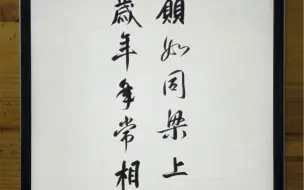 願如同梁上
歲年年常相